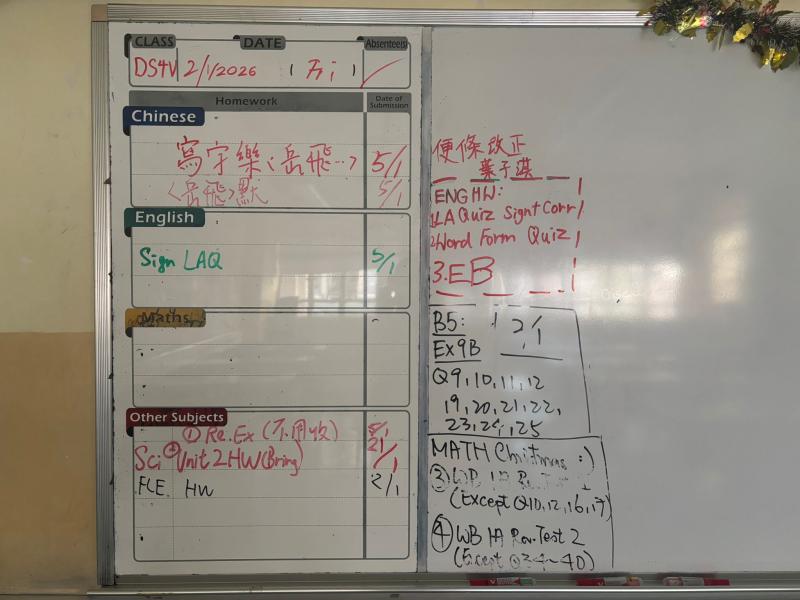 CLASS DATE Absentees
DS4V 2/1/2026 ( 五 )
Homework Date of Submission
Chinese
寫字樂〈岳飛…〉 5/1
〈岳飛〉默 5/1
English
Sign LAQ 5/1
Maths
Other Subjects
① Re.Ex (不用收)
Sci Unit 2 HW (Bring) 2/1
HW 2/1
便條改正
葉子淇
ENG HW:
1.LA Quiz Sign+Corr
2.Word Form Quiz
3.EB
B5: 2/1
Ex9B
Q9,10,11,12
19,20,21,22,
23,24,25
MATH Christmas :)
③ WB 1A Rev.
(Except Q10,12,16,17)
④ WB 1A Rev. Test 2
(Except Q34~40)